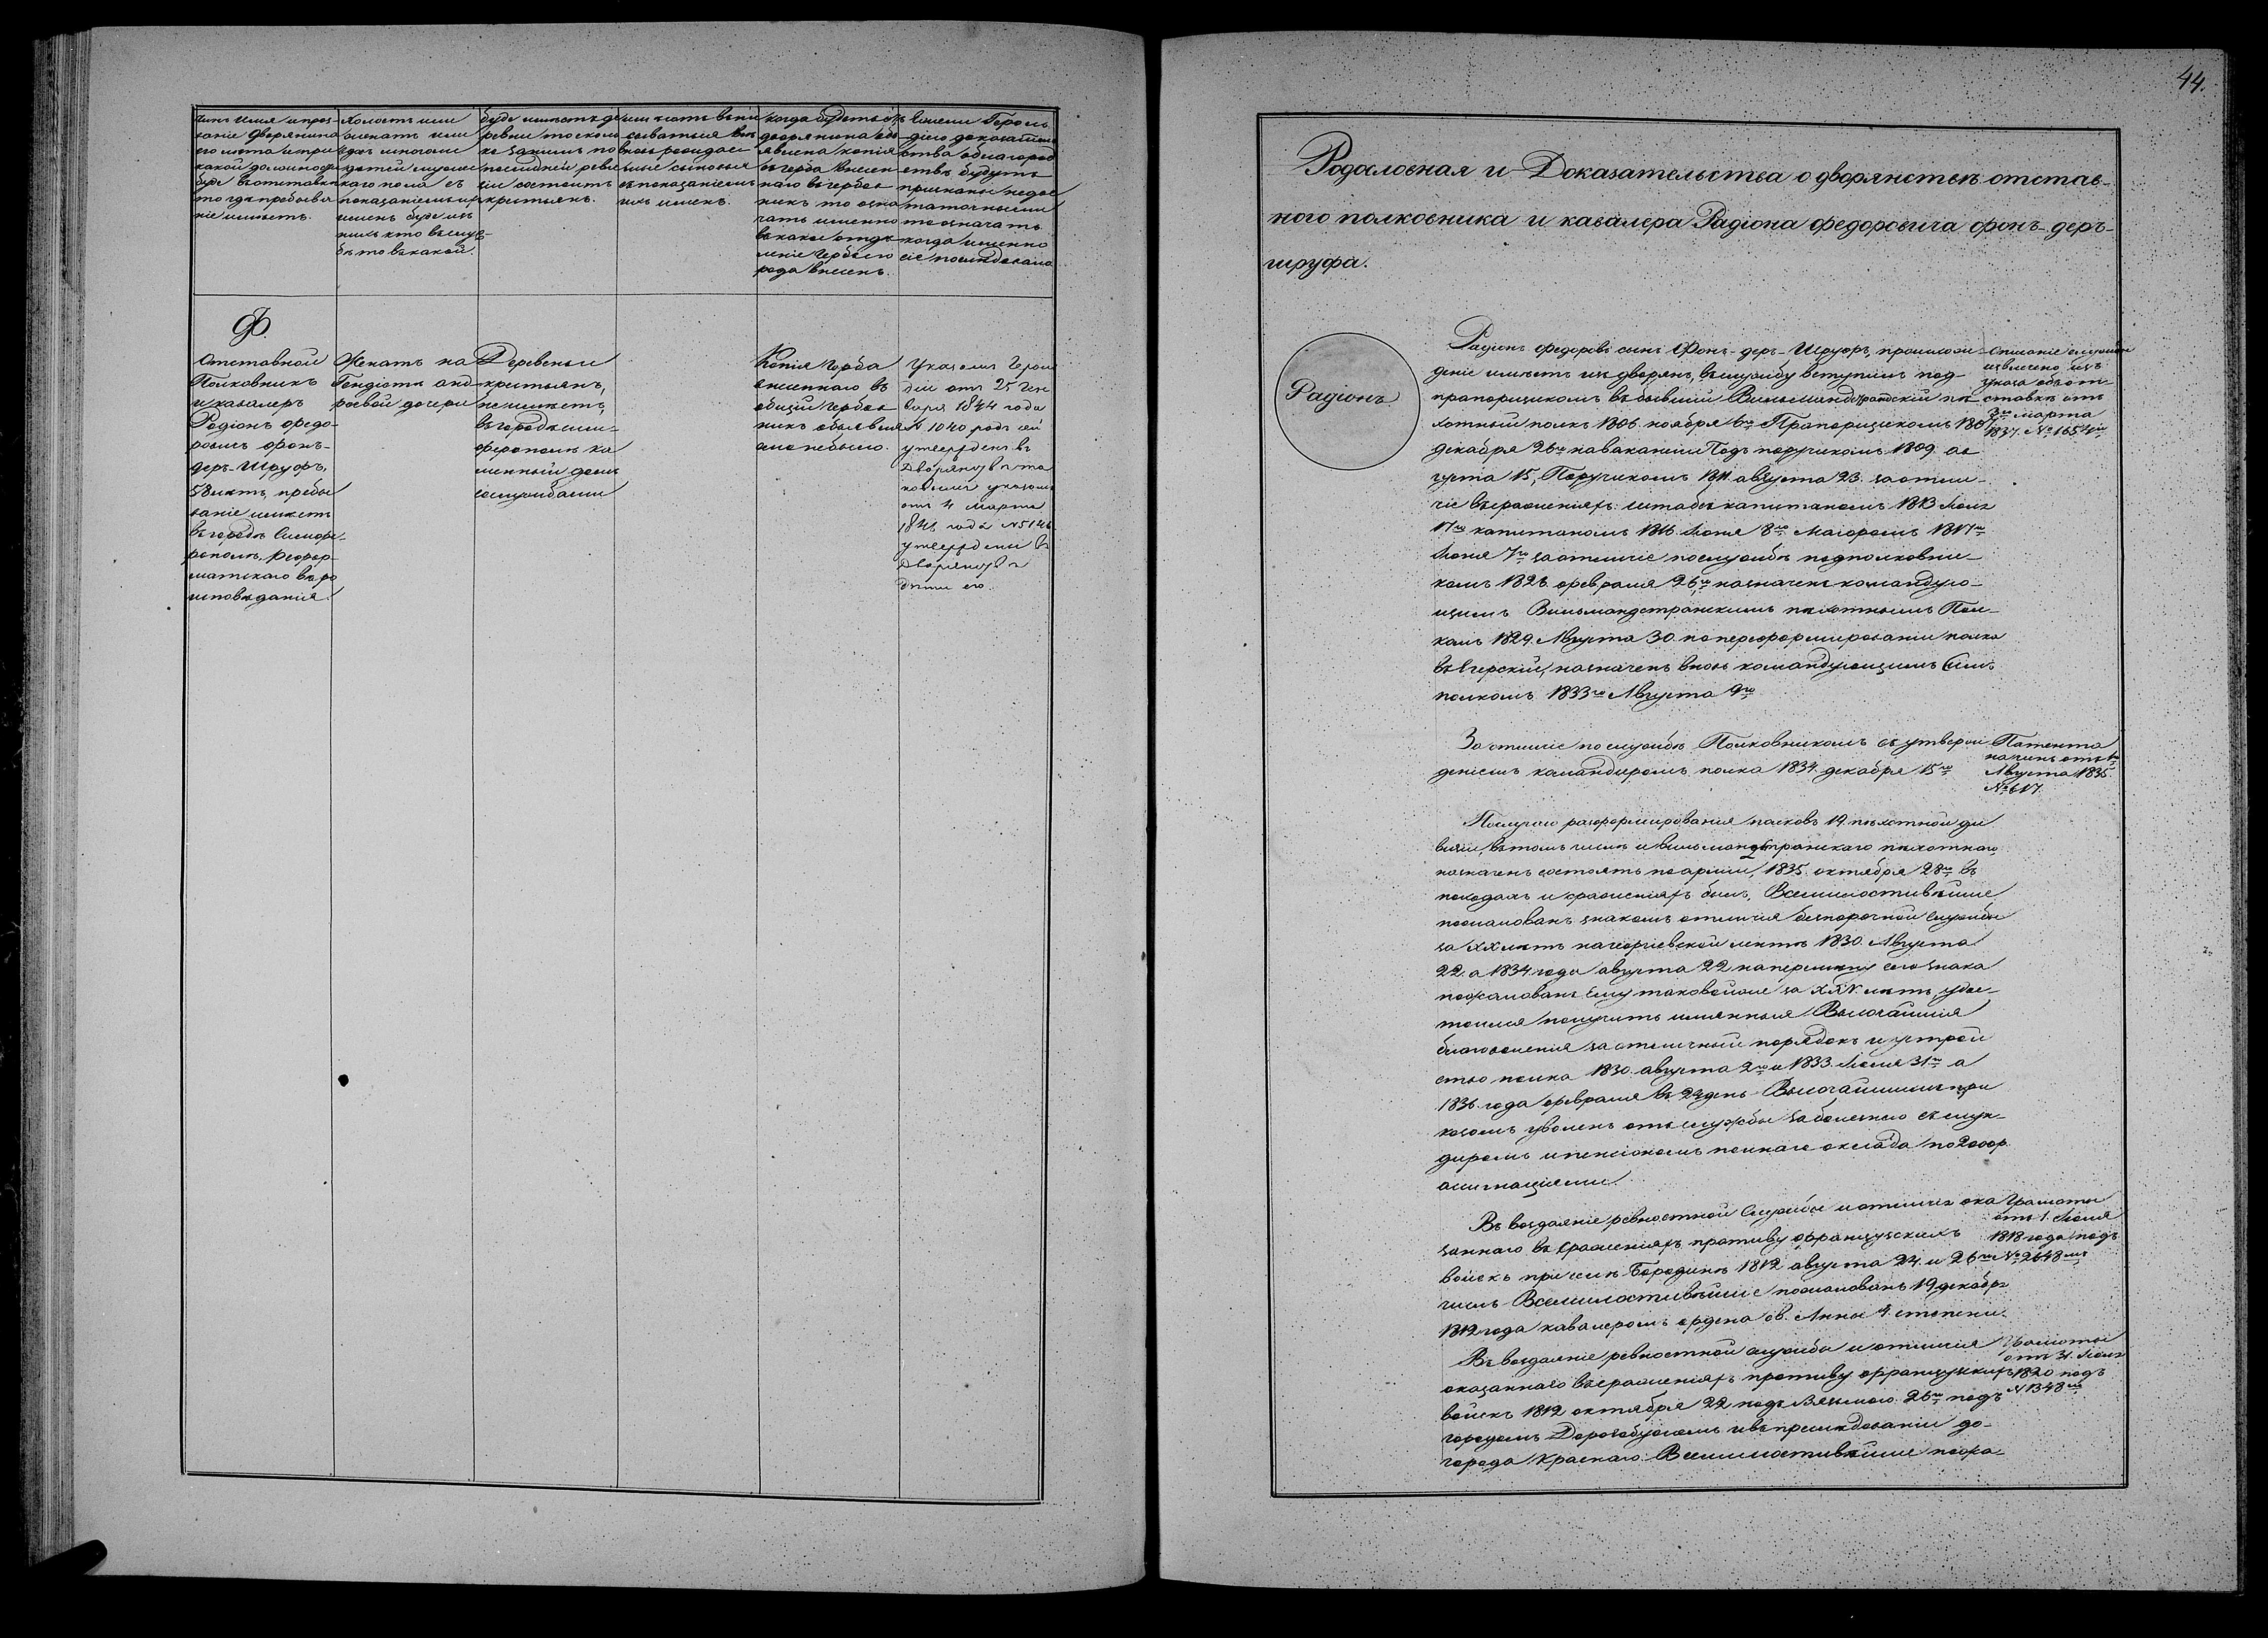 Чинъ имя и проз-
ваніе дворянина
его лета и при
какой должности
буде въ отставки
то где пребыва
ніе имѣетъ.
Холостъ или
женатъ или
вдовъ много ли
детей мужес
каго пола съ
показаніемъ ихъ
именъ буде изъ
нихъ кто въ служ-
бе то въ какой.
буде имѣетъ де
ревни то сколь
ко за нимъ по
последней реви
зіи состоитъ
крестьянъ.
сыновья
съ показаніемъ
ихъ именъ.
когда будетъ съ
дворянина объ
явлена копія
съ герба внесен
наго въ гербов
никъ то озна
чать именно
въ какое отде
леніе герба его
рода внесенъ.
коими Героль
діею доказатель
ства о благород
стве будутъ
признаны недос
таточными
то означать
когда именно
сіе последовало
Ф.
Отставной
Полковникъ
и кавалеръ
Радіонъ федо
ровъ фонъ-
деръ-Шруфъ,
58 летъ, пребы
ваніе имѣетъ
въ городе Симфе-
рополѣ, Рефор-
матскаго веро
исповеданія.
Женатъ на
дочери
Деревень и
крестьянъ,
не имѣетъ,
въ городе Сим-
ферополѣ ка
менный домъ
со службами
Копія Герба
внесеннаго въ
общій гербов
никъ объявле
но небыло.
Указомъ Героль
діи отъ 25 Ген
варя 1844 года
№ 1040 родъ сей
утвержденъ въ
Дворянстве та
ковымъ указомъ
отъ 4 Марта
утверждены въ
Дворянстве
дети его.
44.
Родословная и Доказательства о дворянстве отстав-
ного полковника и кавалера Радіона федоровича фонъ-деръ-
шруфа.
Радіонъ
Радіонъ федоровъ сынъ Фонъ-деръ-Шруфъ, происхож-
деніе имѣетъ изъ дворянъ, въ службу вступилъ под-
прапорщикомъ въ бывшій Вильманстрандскій пе-
хотный полкъ 1806. ноября 6го Прапорщикомъ 1807.
декабря 26го на ваканcіи Подъ поручикомъ 1809. ав
густа 15, Поручикомъ 1811. августа 23. за отли-
чіе въ сраженіяхъ: штабсъ капитаномъ 1813 Іюля
17го капитаномъ 1816. Іюня 8го Маіоромъ 1817го
Іюня 7го за отличіе по службѣ подполковни-
комъ 1826. февраля 26го назначенъ командую-
щимъ Вильманстранскимъ пехотнымъ Пол-
комъ 1829. Августа 30. по переформированіи полка
въ Егерскій, назначенъ вновь командующимъ симъ
полкомъ 1833го Августа 9го
Описаніе службы
извлечено изъ
указа объ от-
ставке отъ
3го марта
1837. № 1654м
За отличіе по службѣ Полковникомъ съ утверж-
деніемъ командиромъ полка 1834. декабря 15го
Патента
на чинъ отъ 1го
Августа 1835.
№ 617.
По случаю разформированія полковъ 19. пехотной ди
визіи, въ томъ числѣ и вильманстранскаго пехотнаго,
назначенъ состоять по арміи, 1835. октября 28го въ
походахъ и сраженіяхъ былъ, Всемилостивѣйше
пожалованъ знакомъ отличія безпорочной службы
за XX летъ на георгіевской ленте 1830. Августа
22. а 1834 года августа 22 на перемену сего знака
пожалованъ Ему таковой же за XXV. летъ удос-
тоился получить имянныя Высочайшія
благоволенія за отличный порядокъ и устрой
ство полка 1830. августа 2го и 1833. Іюля 31го а
1836 года февраля въ 22 день Высочайшимъ при
казомъ уволенъ отъ службы за болезнію съ мун-
диромъ и пенсіономъ полнаго оклада по 2000 р.
асигнаціями.
Въ воздаяніе ревностной службы и отличія ока
заннаго въ сраженіяхъ противу французскихъ
войскъ при селе Бородинѣ 1812 августа 24. и 26го
числъ Всемилостивѣйше пожалованъ 19 декабря
1812 года кавалеромъ ордена св. Анны 4. степени.
Грамоты
отъ 1. Іюля
1818 года подъ
№ 2648мъ
Въ воздаяніе ревностной службы и отличія
оказаннаго въ сраженіяхъ противу французскихъ
войскъ 1812 октября 22 подъ Вязьмою. 26го подъ
городомъ Дорогобужемъ и въ преследованіи до-
города Краснаго. Всемилостивѣйше пожа-
Грамоты
отъ 31. Іюля
1820 подъ
№ 1348мъ